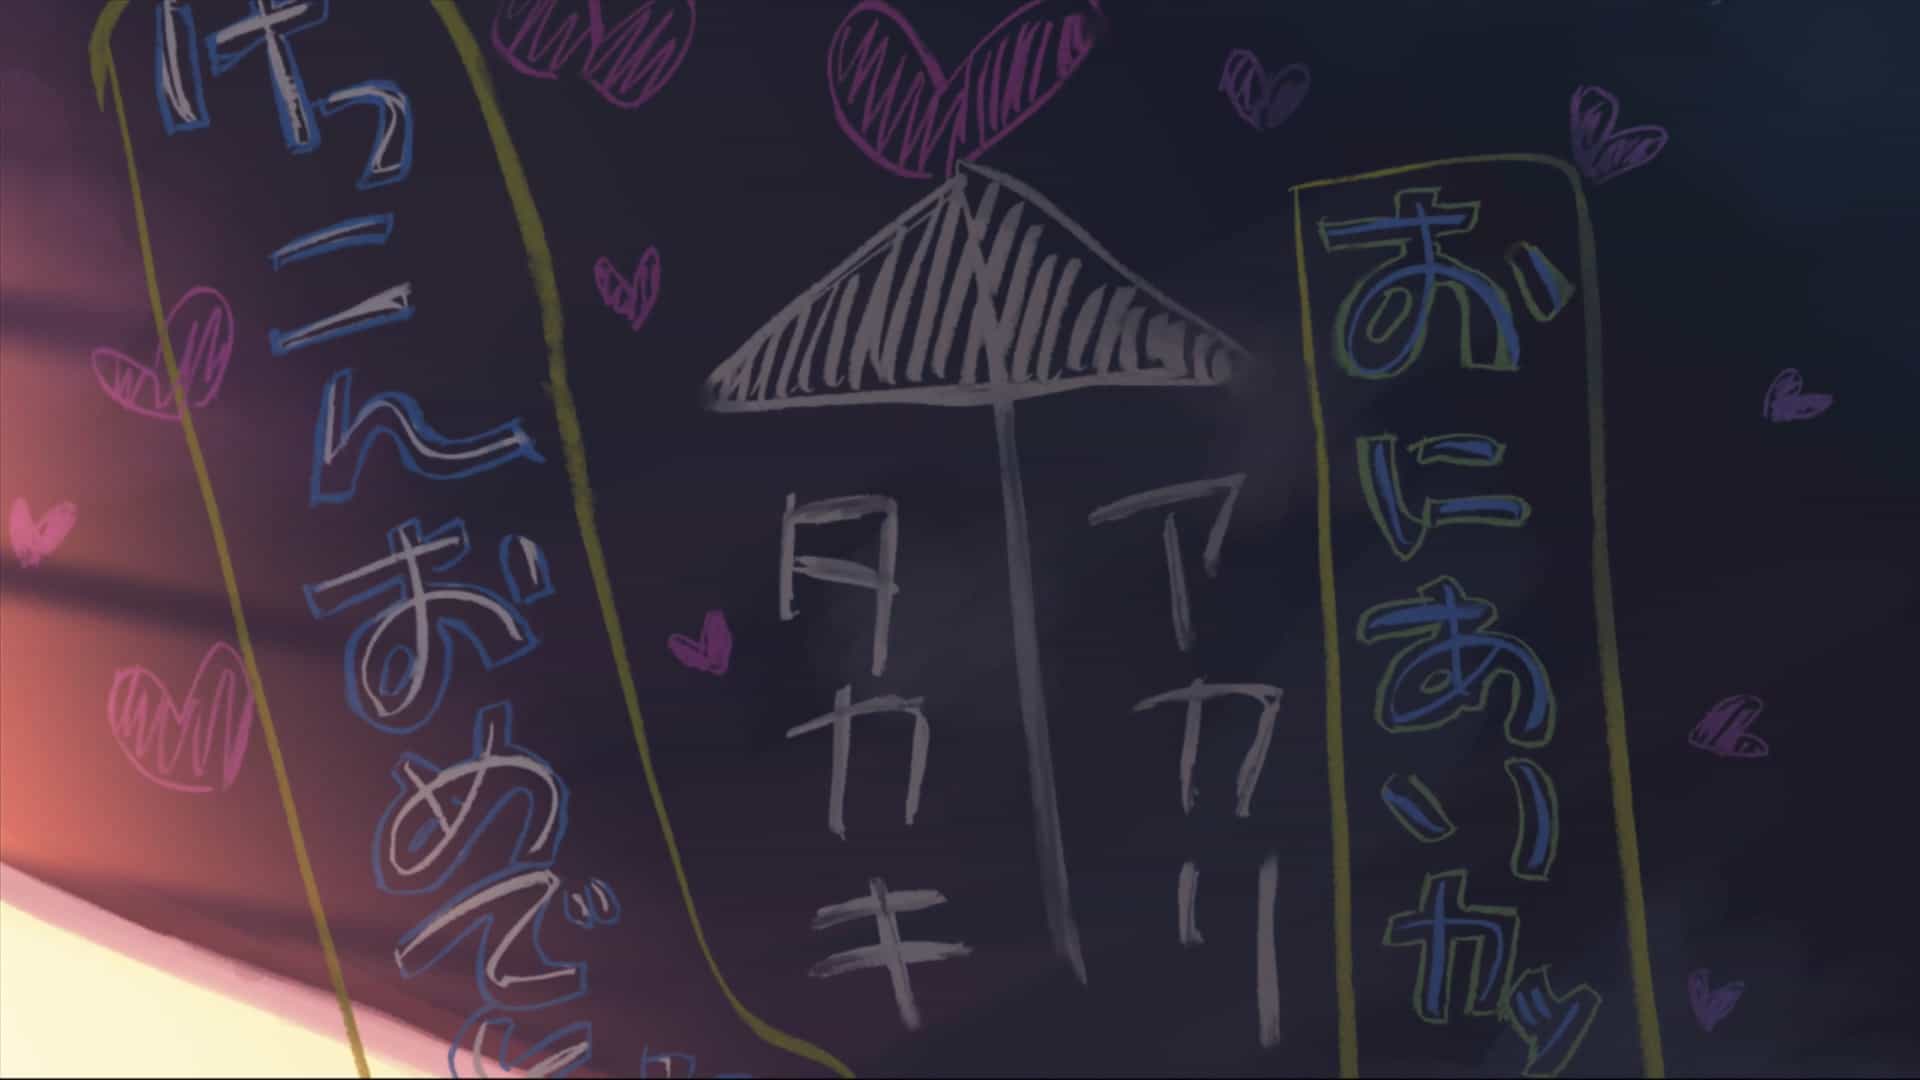 おにあいカッ
アカリ
タカキ
けっこんおめでと